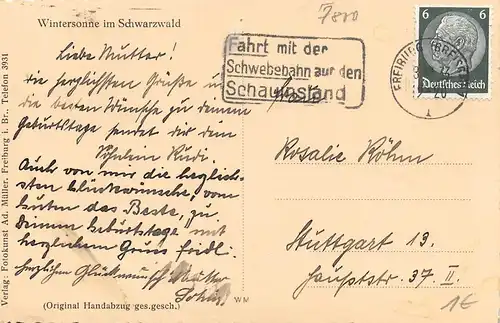 Wintersonne im Schwarzwald
7800
Liebe Mutter!
Die herzlichsten Grüße und
die besten Wünsche zu deinem
Geburtstage sendet dir dein
Rudi.
Auch von mir die herzlich-
sten Glückwünsche, vom
Guten das Beste, zu
Deinem Geburtstage mit
herzlichem Gruss Friedl.
Herzlichen Glückwunsch Mutter
(Original Handabzug ges.gesch.)
WM
Verlag: Fotokunst Ad. Müller, Freiburg i. Br., Telefon 3931
Fahrt mit der
Schwebebahn auf den
Schauinsland
6 6
Deutsches Reich
FREIBURG (BREISGAU)
1
Rosalie Röhm
Stuttgart 13.
Hauptstr. 37. II.
1€